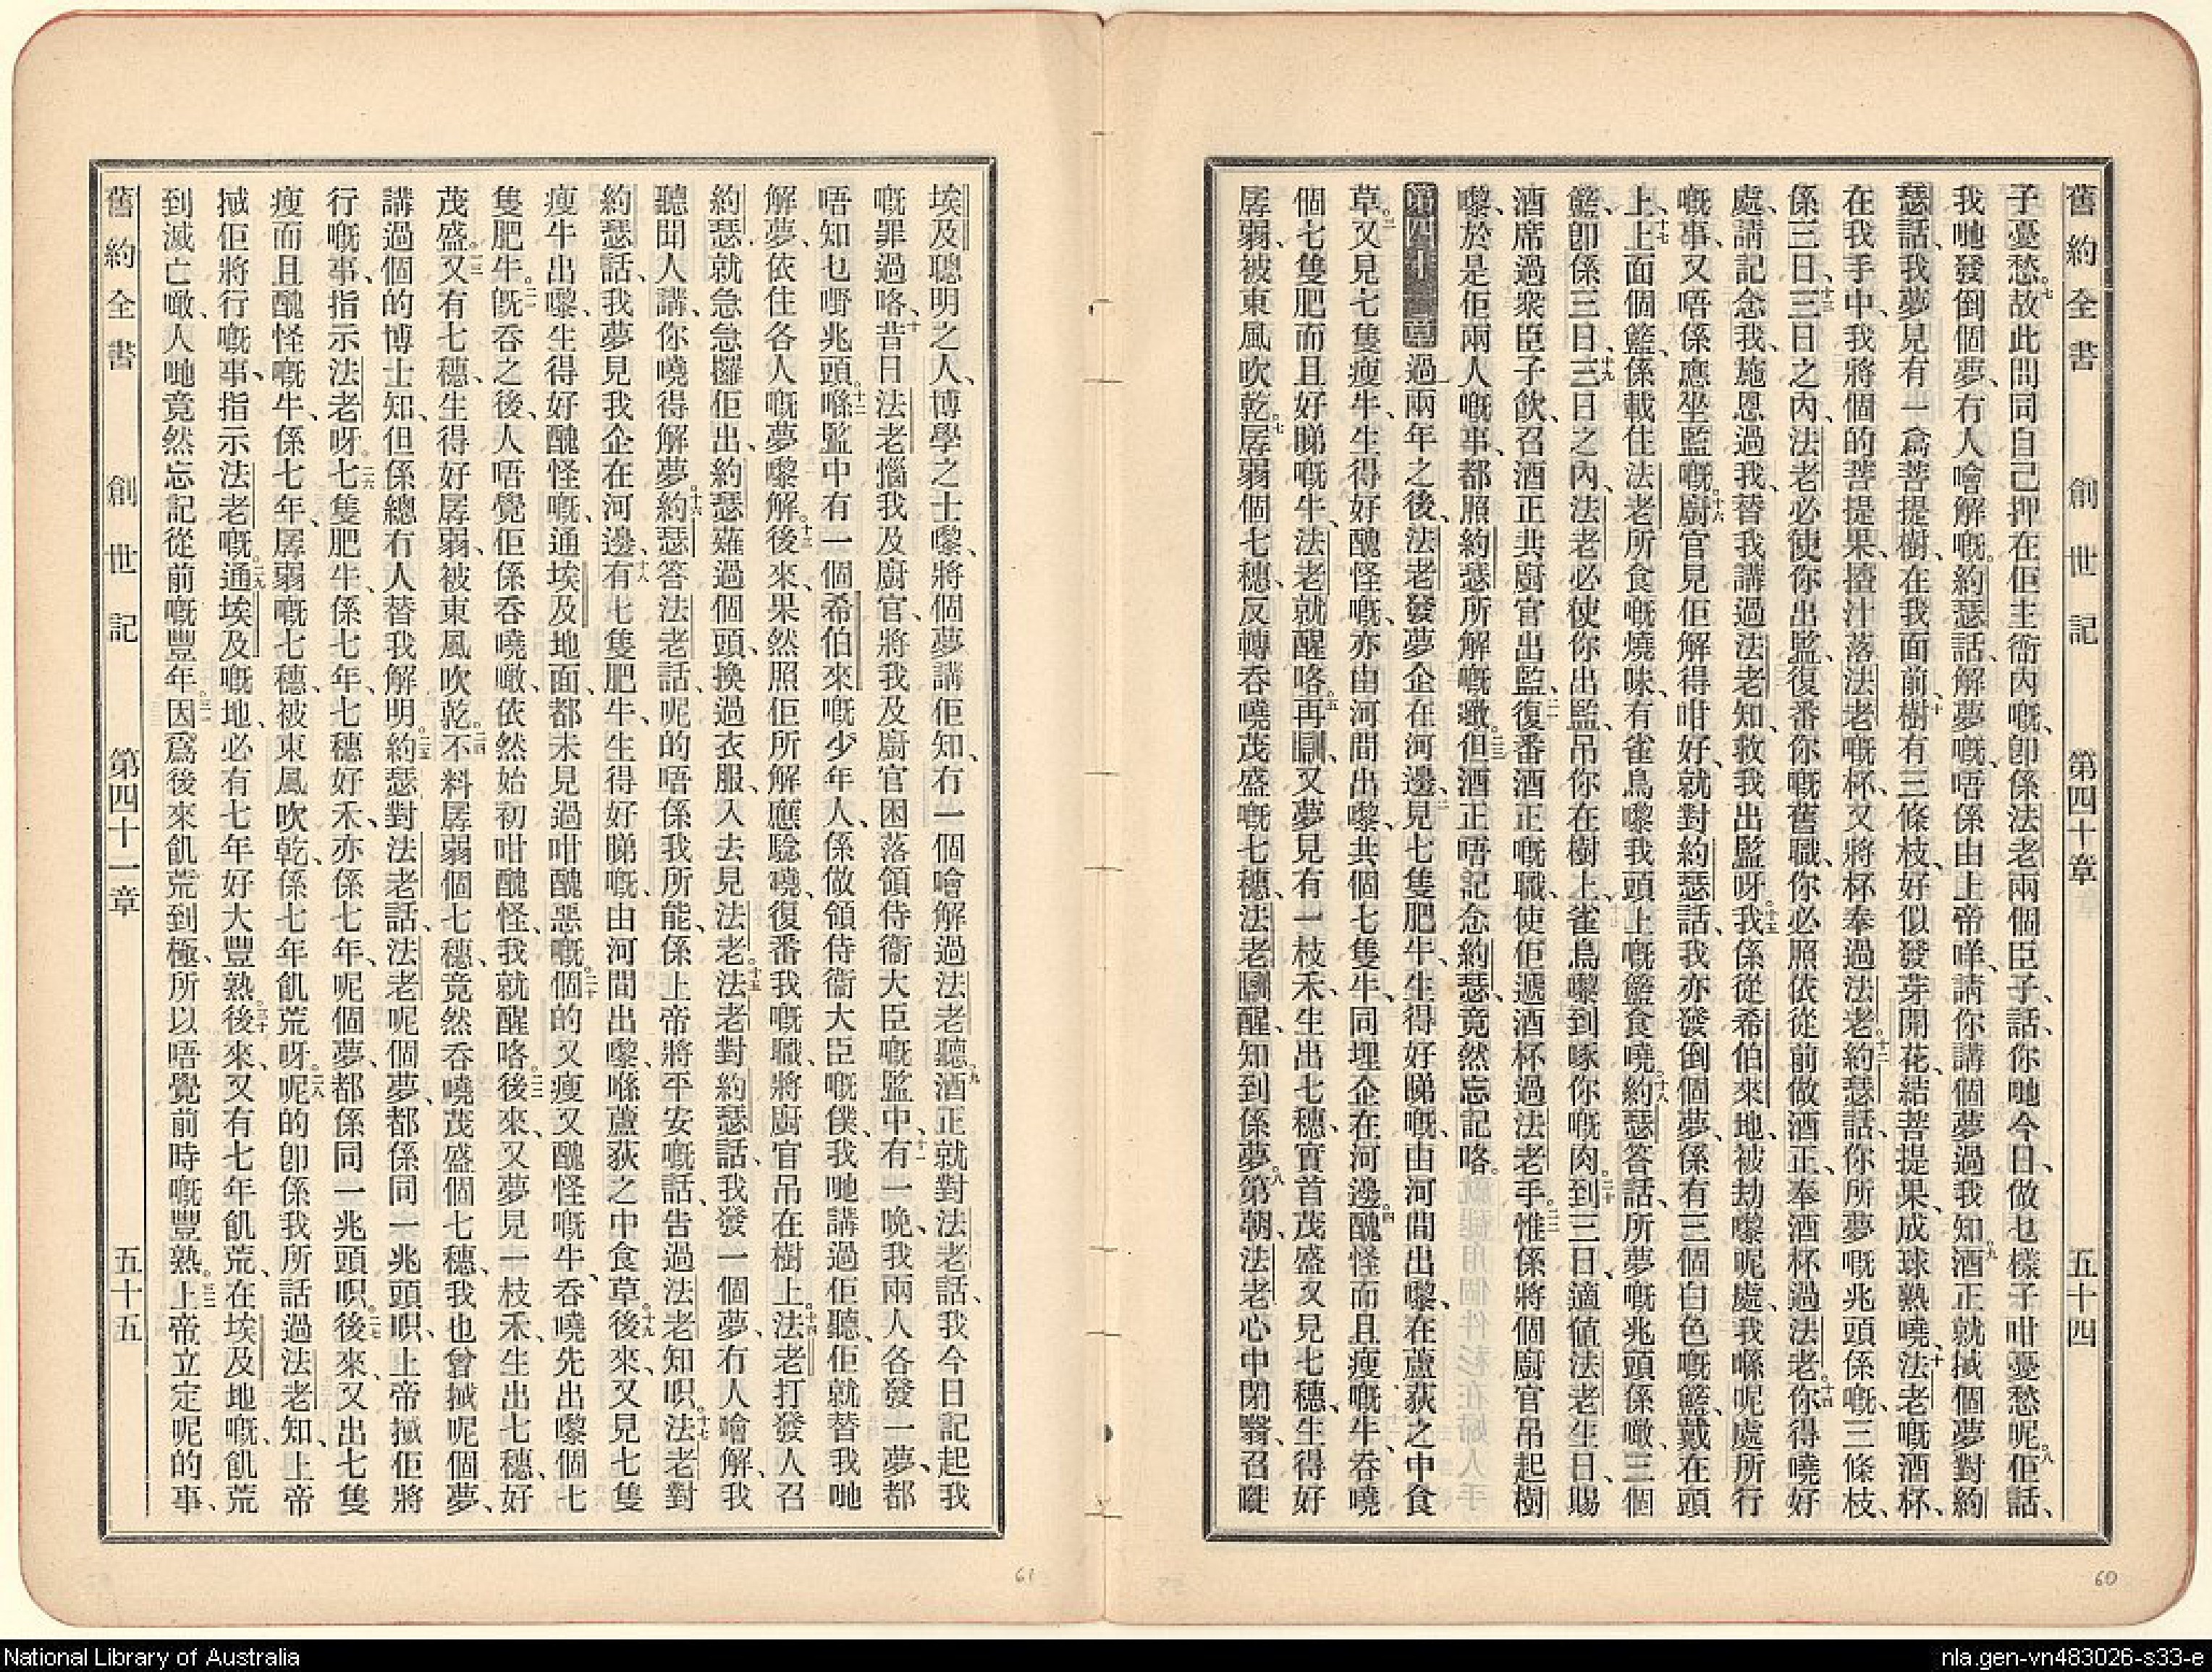 舊約全書 創世記 第四十章 五十四
子憂愁。七故此問同自己押在佢主衙內嘅、卽係法老兩個臣子、話、你哋今日、做乜樣子咁憂愁呢。八佢話、
我哋發倒個夢、冇人噲解嘅。約瑟話、解夢嘅、唔係由上帝咩、請你講個夢過我知。九酒正就搣個夢對約
瑟話、我夢見有一喬菩提樹、在我面前、十樹有三條枝、好似發芽開花、結菩提果、成球熟曉、十一法老嘅酒杯、
在我手中、我將個的菩提果、擠汁落法老嘅杯、又將杯奉過法老。十二約瑟話、你所夢嘅兆頭係嘅、三條枝、
係三日、十三三日之內、法老必使你出監、復番你嘅舊職、你必照依從前做酒正、奉酒杯過法老。十四你得曉好
處、請記念我、施恩過我、替我講過法老知、救我出監呀。十五我係從希伯來地、被劫嚟呢處、我喺呢處所行
嘅事、又唔係應坐監嘅。十六廚官見佢解得咁好、就對約瑟話、我亦發倒個夢、係有三個白色嘅籃、戴在頭
上、十七上面個籃、係載住法老所食嘅燒味、有雀鳥嚟我頭上嘅籃食曉。十八約瑟答話、所夢嘅兆頭係噉、三個
籃、卽係三日、十九三日之內、法老必使你出監、吊你在樹上、雀鳥嚟到啄你嘅肉。二十到三日、適值法老生日、賜
酒席過衆臣子飲、召酒正共廚官出監、二一復番酒正嘅職、使佢遞酒杯過法老手。二二惟係將個廚官吊起樹
嚟、於是佢兩人嘅事、都照約瑟所解嘅噉。二三但酒正唔記念約瑟、竟然忘記咯。
第四十一章 一過兩年之後、法老發夢企在河邊、二見七隻肥牛、生得好睇嘅、由河間出嚟、在蘆荻之中食
草。三又見七隻瘦牛、生得好醜怪嘅、亦由河間出嚟、共個七隻牛、同埋企在河邊。四醜怪而且瘦嘅牛、吞曉
個七隻肥而且好睇嘅牛、法老就醒咯。五再瞓又夢見有一枝禾、生出七穗、實首茂盛。又見七穗、生得好
孱弱、被東風吹乾。七孱弱個七穗、反轉吞曉茂盛嘅七穗、法老瞓醒、知到係夢。八第朝、法老心中閉翳、召嚨
埃及聰明之人、博學之士嚟、將個夢講佢知、冇一個噲解過法老聽。九酒正就對法老話、我今日記起我
嘅罪過咯、十昔日法老惱我及廚官、將我及廚官困落領侍衞大臣嘅監中、十一有一晚、我兩人各發一夢、都
唔知乜嘢兆頭。十二喺監中有一個希伯來嘅少年人、係做領侍衞大臣嘅僕、我哋講過佢聽、佢就替我哋
解夢、依住各人嘅夢嚟解。十三後來、果然照佢所解應騐曉、復番我嘅職、將廚官吊在樹上。十四法老打發人召
約瑟、就急急攞佢出、約瑟薙過個頭、換過衣服、入去見法老。十五法老對約瑟話、我發一個夢、冇人噲解、我
聽聞人講、你曉得解夢。十六約瑟答法老話、呢的唔係我所能、係上帝將平安嘅話、告過法老知呮。十七法老對
約瑟話、我夢見我企在河邊、十八有七隻肥牛、生得好睇嘅、由河間出嚟、喺蘆荻之中食草。十九後來、又見七隻
瘦牛出嚟、生得好醜怪嘅、通埃及地面、都未見過咁醜惡嘅。二十個的又瘦又醜怪嘅牛、吞曉先出嚟個七
隻肥牛。二一旣吞之後、人唔覺佢係吞曉噉、依然始初咁醜怪、我就醒咯。二二後來、又夢見一枝禾、生出七穗、好
茂盛。二三又有七穗、生得好孱弱、被東風吹乾。二四不料孱弱個七穗、竟然吞曉茂盛個七穗、我也曾搣呢個夢、
講過個的博士知、但係總冇人替我解明。二五約瑟對法老話、法老呢個夢、都係同一兆頭呮、上帝搣佢將
行嘅事、指示法老呀。二六七隻肥牛、係七年、七穗好禾、亦係七年、呢個夢、都係同一兆頭呮。二七後來、又出七隻
瘦而且醜怪嘅牛、係七年、孱弱嘅七穗、被東風吹乾、係七年飢荒呀。二八呢的卽係我所話過法老知、上帝
搣佢將行嘅事、指示法老嘅。二九通埃及嘅地、必有七年好大豐熟。三十後來、又有七年飢荒、在埃及地嘅、飢荒
到滅亡噉、人哋竟然忘記從前嘅豐年。三一因爲後來飢荒到極、所以唔覺前時嘅豐熟。三二上帝立定呢的事、
舊約全書 創世記 第四十一章 五十五
60
61
National Library of Australia
nla.gen-vn483026-s33-e